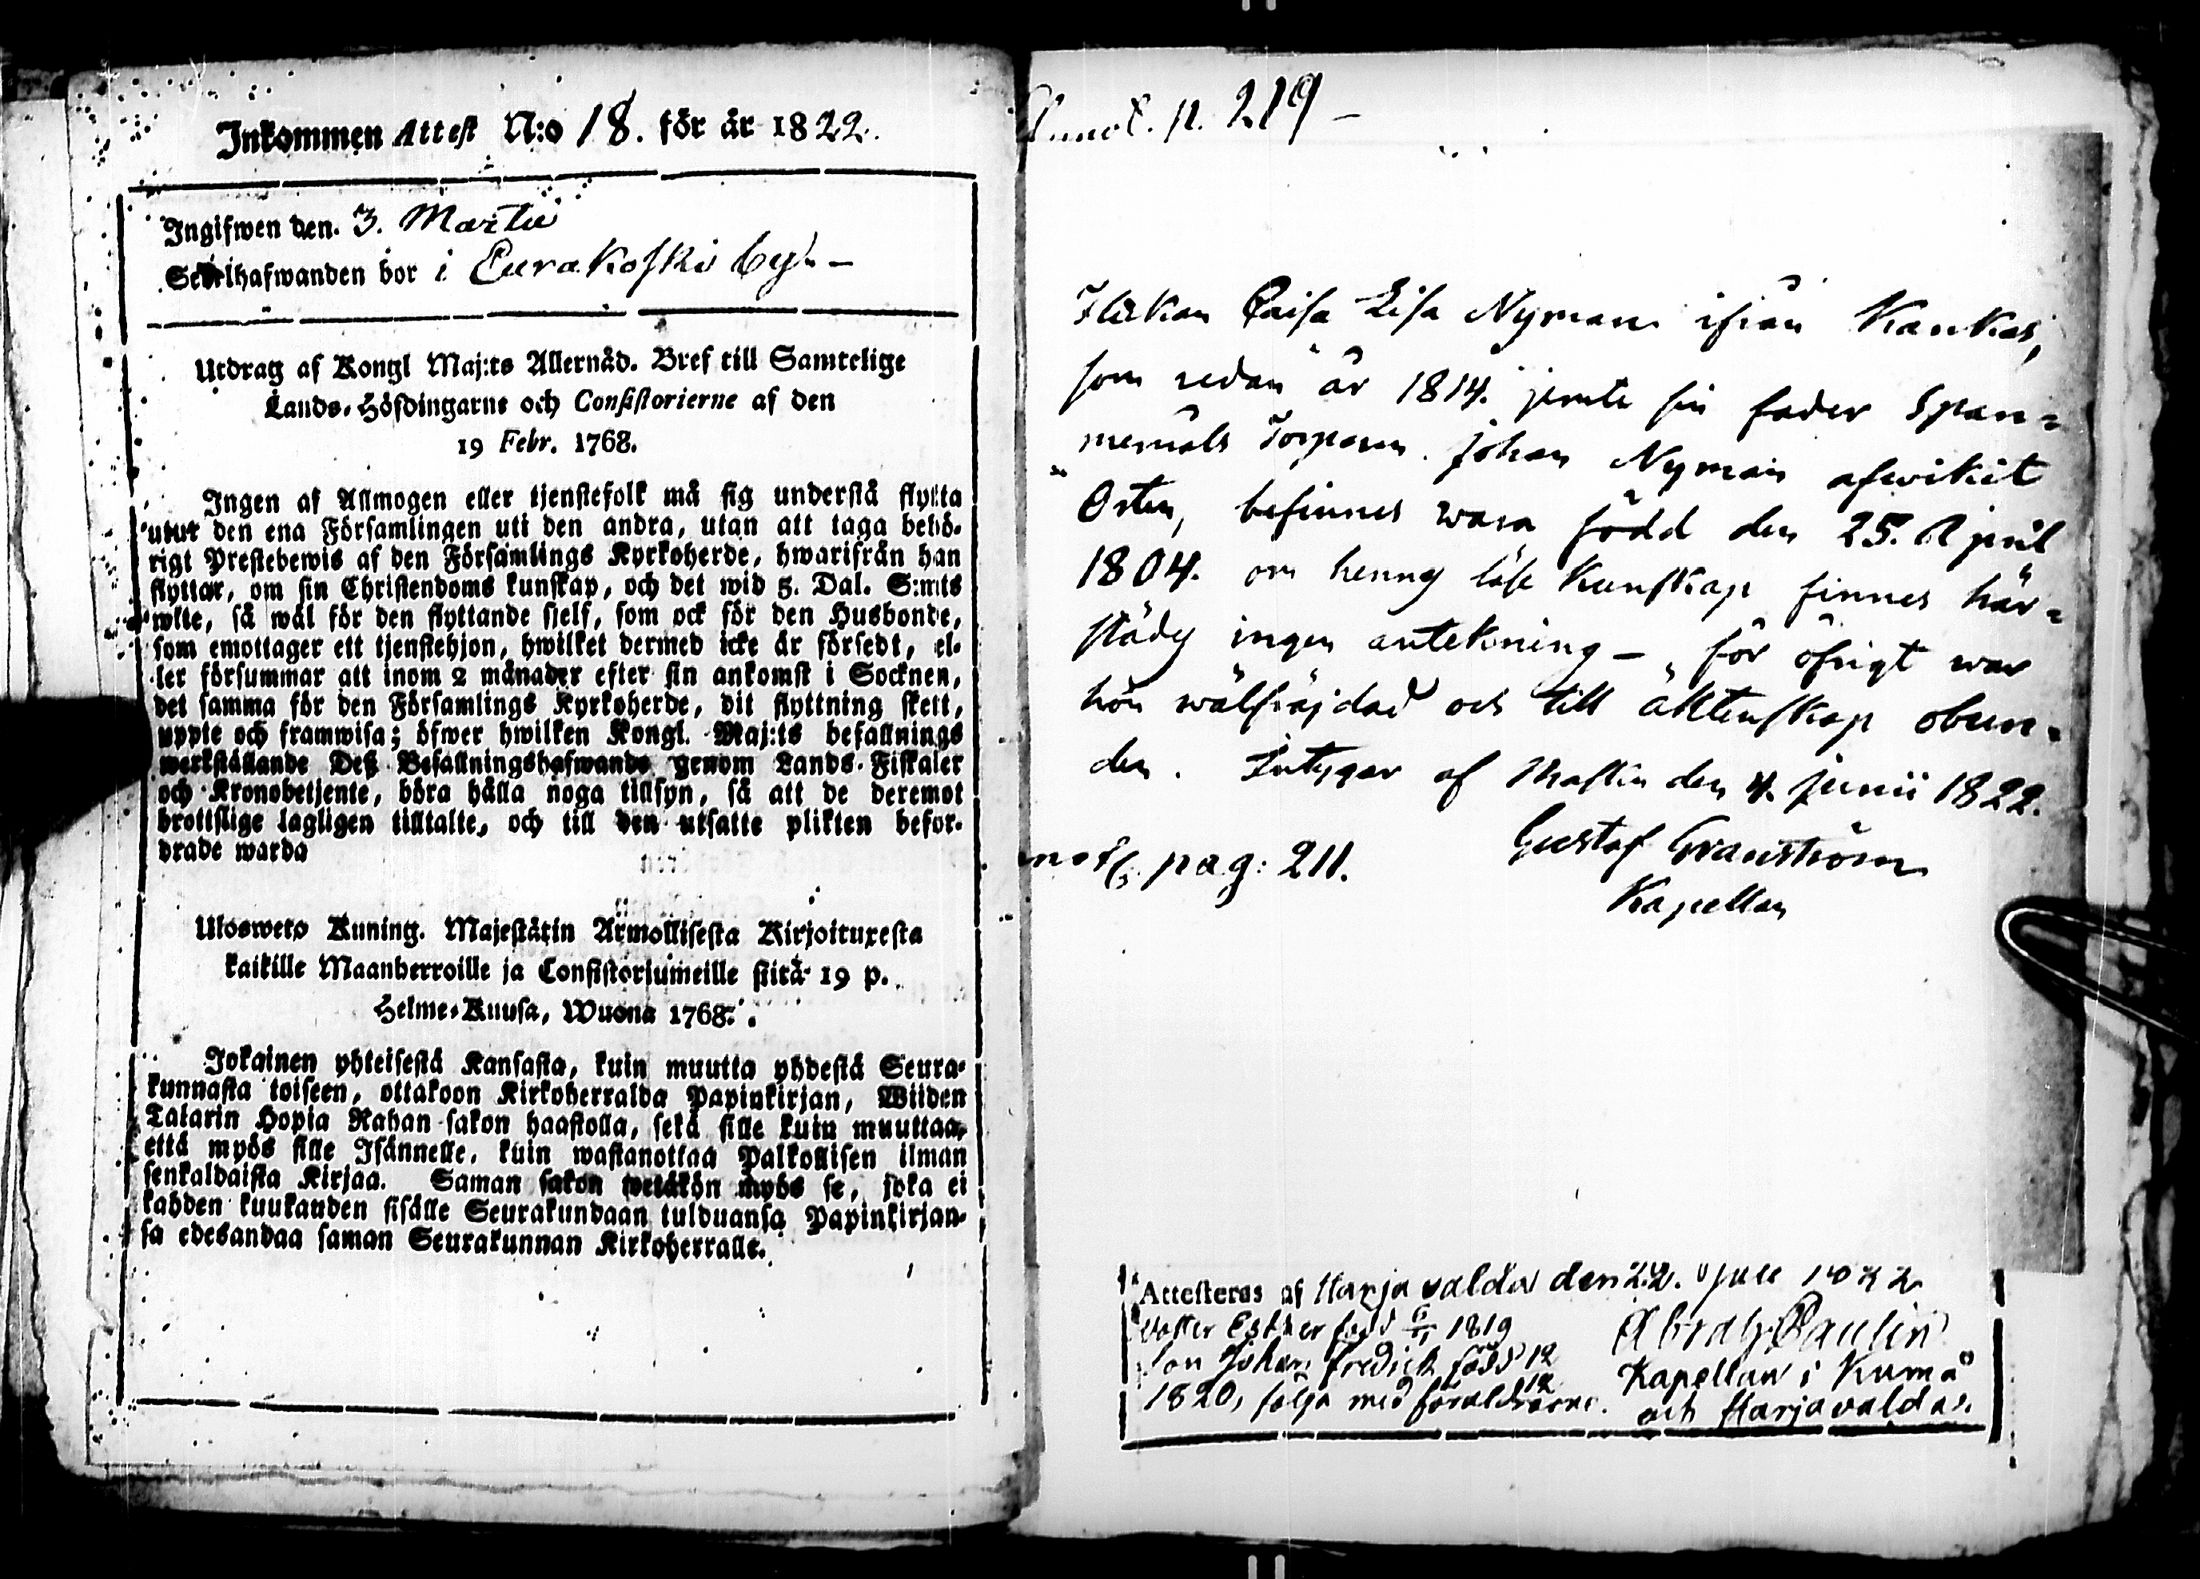 Inkommen Attest N:o 18. för år 1822.
Ingifwen den. 3. Martii
Sedelhafwanden bor i Eurakoski by. –
Utdrag af Kongl Maj:ts Allernåd. Bref till Samtelige
Lands-Höfdingarne och Consistorierne af den
19 Febr. 1768.
Ingen af Allmogen eller tjenstefolk må sig understå flytta
utur den ena Församlingen uti den andra, utan att taga behö-
rigt Prestebewis af den Församlings Kyrkoherde, hwarifrån han
flyttar, om sin Christendoms kunskap, och det wid 5. Dal. S:mts
wite, så wäl för den flyttande sjelf, som ock för den Husbonde,
som emottager ett tjenstehjon, hwilket dermed icke är försedt, el-
ler försummar att inom 2 månader efter sin ankomst i Socknen,
det samma för den Församlings Kyrkoherde, dit flyttning skett,
uppte och framwisa; öfwer hwilken Kongl. Maj:ts befallnings
werkställande Deß Befallningshafwande genom Lands-Fiskaler
och Kronobetjente, böra hålla noga tillsyn, så att de deremot
brottslige lagligen tilltalte, och till den utsatte plikten befor-
drade warda
Uloswetо Kuning. Majestätin Armollisesta Kirjoituxesta
kaikille Maanherroille ja Consistoriumeille siitä 19 p.
Helme-Kuusa, Wuona 1768.
Jokainen yhteisestä Kansasta, kuin muutta yhdestä Seura-
kunnasta toiseen, ottakoon Kirkoherralda Papinkirjan, Wiiden
Talarin Hopia Rahan sakon haastolla, sekä sille kuin muuttaa,
että myös sille Isännelle, kuin wastanottaa Palkollisen ilman
senkaldaista Kirjaa. Saman sakon wetäkön myös se, joka ei
kahden kuukauden sisälle Seurakundaan tulduansa Papinkirjan-
sa edesandaa saman Seurakunnan Kirkoherralle.
Annot. p. 219 –
Flickan Caisa Lisa Nyman ifrån Kankas,
som redan år 1814. jemte sin fader Span-
merials Torparen Johan Nyman afwikit
Orten, befinnes wara född den 25. April
1804. om hennes läse kunskap finnes här-
städes ingen antekning – för öfrigt war
hon wälfräjdad och till äktenskap obun-
den. Intygar af den 4. Junii 1822.
Gustaf Granström
Kapellan
pag: 211.
Attesteras af Harjavalda den 22. Juli
Dotter Esther född 1819
Son Johan Fredrick född 12
12
1820, följa med föräldrarne.
Abrah. Paulin
Kapellan i Kumå
och Harjavaldas.